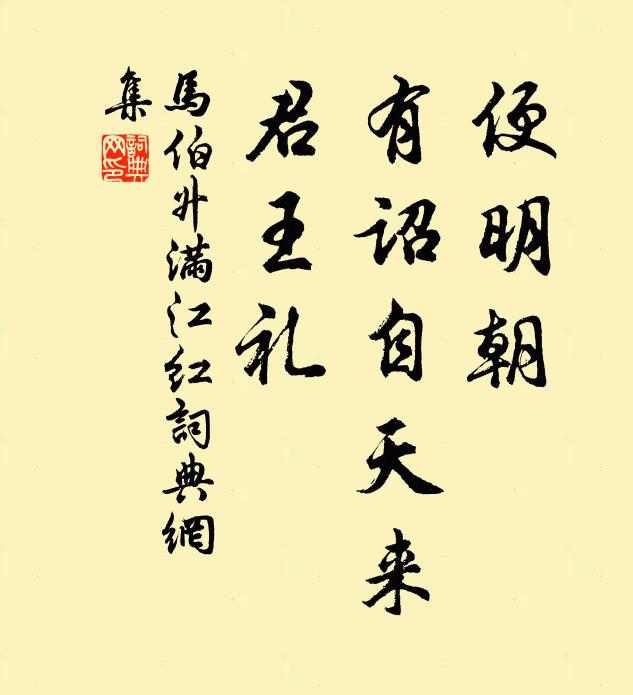 便明朝
有诏自天来
君王礼
馬伯升滿江红詞典網
集
詞典
网印